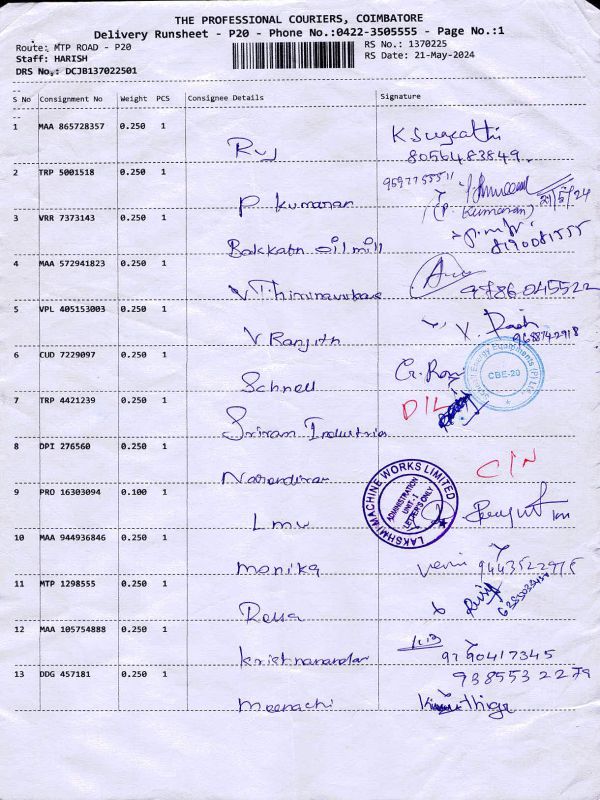 THE PROFESSIONAL COURIERS, COIMBATORE
Delivery Runsheet - P20 - Phone No.:0422-3505555 - Page No.:1
Route: MTP ROAD - P20
RS No.: 1370225
Staff: HARISH
RS Date: 21-May-2024
DRS No.: DCJB137022501
S No Consignment No Weight PCS Consignee Details Signature
1 MAA 865728357 0.250 1
8056483849
2 TRP 5001518 0.250 1
P Kumaran
(P. Kumaran) 21/5/24
3 VRR 7373143 0.250 1
oil mill
8190081555
4 MAA 572941823 0.250 1
9786045522
5 VPL 405153003 0.250 1
V Ranjith
6 CUD 7229097 0.250 1
Schnell
Energy Equipments (P) Ltd.
CBE-20
7 TRP 4421239 0.250 1
Sriram Industria
D/L
8 DPI 276560 0.250 1
C/N
9 PRO 16303094 0.100 1
Lmw
LAKSHMI MACHINE WORKS LIMITED
ADMINISTRATION
UNIT-I
LETTERS ONLY
10 MAA 944936846 0.250 1
Monika
11 MTP 1298555 0.250 1
12 MAA 105754888 0.250 1
9790417345
13 DDG 457181 0.250 1
Meenachi
9385532279